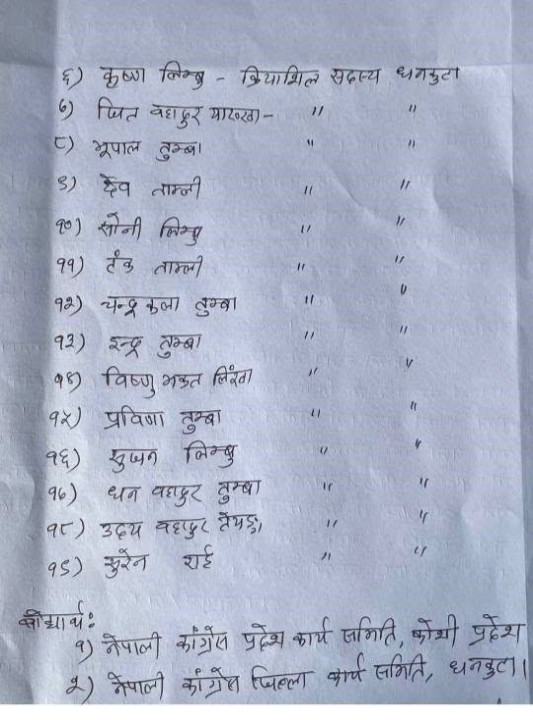 ६) कृष्ण लिम्बु - क्रियाशिल सदस्य धनकुटा
७) जित बहादुर याख्खा - " "
८) भूपाल तुम्बा " "
९) देव ताम्ली " "
१०) सोनी लिम्बु " "
११) टंक ताम्ली " "
१२) चन्द्र कला तुम्बा " "
१३) इन्द्र तुम्बा " "
१४) विष्णु भक्त " "
१५) प्रविणा तुम्बा " "
१६) सुजन लिम्बु " "
१७) धन बहादुर तुम्बा " "
१८) उदय बहादुर " "
१९) सुरेन राई " "
बोधार्थ:
१) नेपाली कांग्रेस प्रदेश कार्य समिति, कोशी प्रदेश
२) नेपाली कांग्रेस जिल्ला कार्य समिति, धनकुटा।